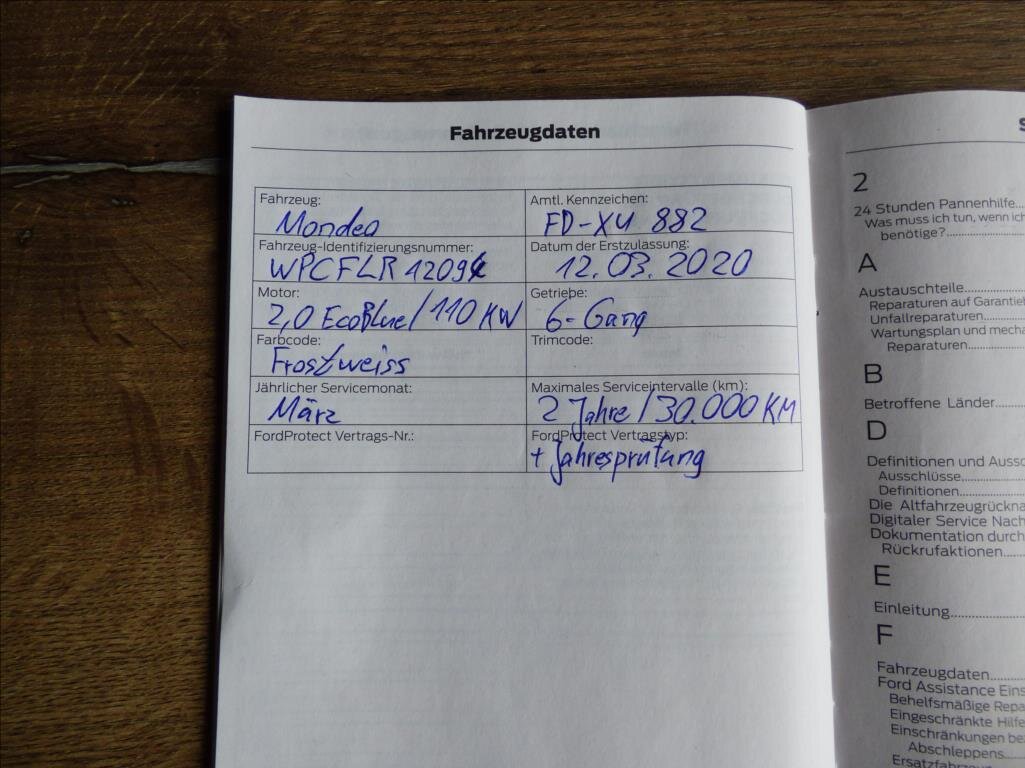 Fahrzeugdaten
Fahrzeug:
Mondeo
Amtl. Kennzeichen:
FD-XU 882
Fahrzeug-Identifizierungsnummer:
Datum der Erstzulassung:
12.03.2020
Motor:
2,0 EcoBlue/110 KW
Getriebe:
6-Gang
Farbcode:
Frostweiss
Trimcode:
Jährlicher Servicemonat:
März
Maximales Serviceintervalle (km):
2 Jahre/30.000 KM
FordProtect Vertrags-Nr.:
FordProtect Vertragstyp:
+ Jahresprüfung
2
24 Stunden Pannenhilfe...
Was muss ich tun, wenn ich
benötige?...
A
Austauschteile...
Reparaturen auf Garantie
Unfallreparaturen...
Wartungsplan und mecha
Reparaturen...
B
Betroffene Länder...
D
Definitionen und Aussc
Ausschlüsse...
Definitionen...
Die Altfahrzeugrückna
Digitaler Service Nach
Dokumentation durch
Rückrufaktionen...
E
Einleitung...
F
Fahrzeugdaten...
Ford Assistance Eins
Behelfsmäßige Repa
Eingeschränkte Hilfe
Einschränkungen be
Abschleppens...